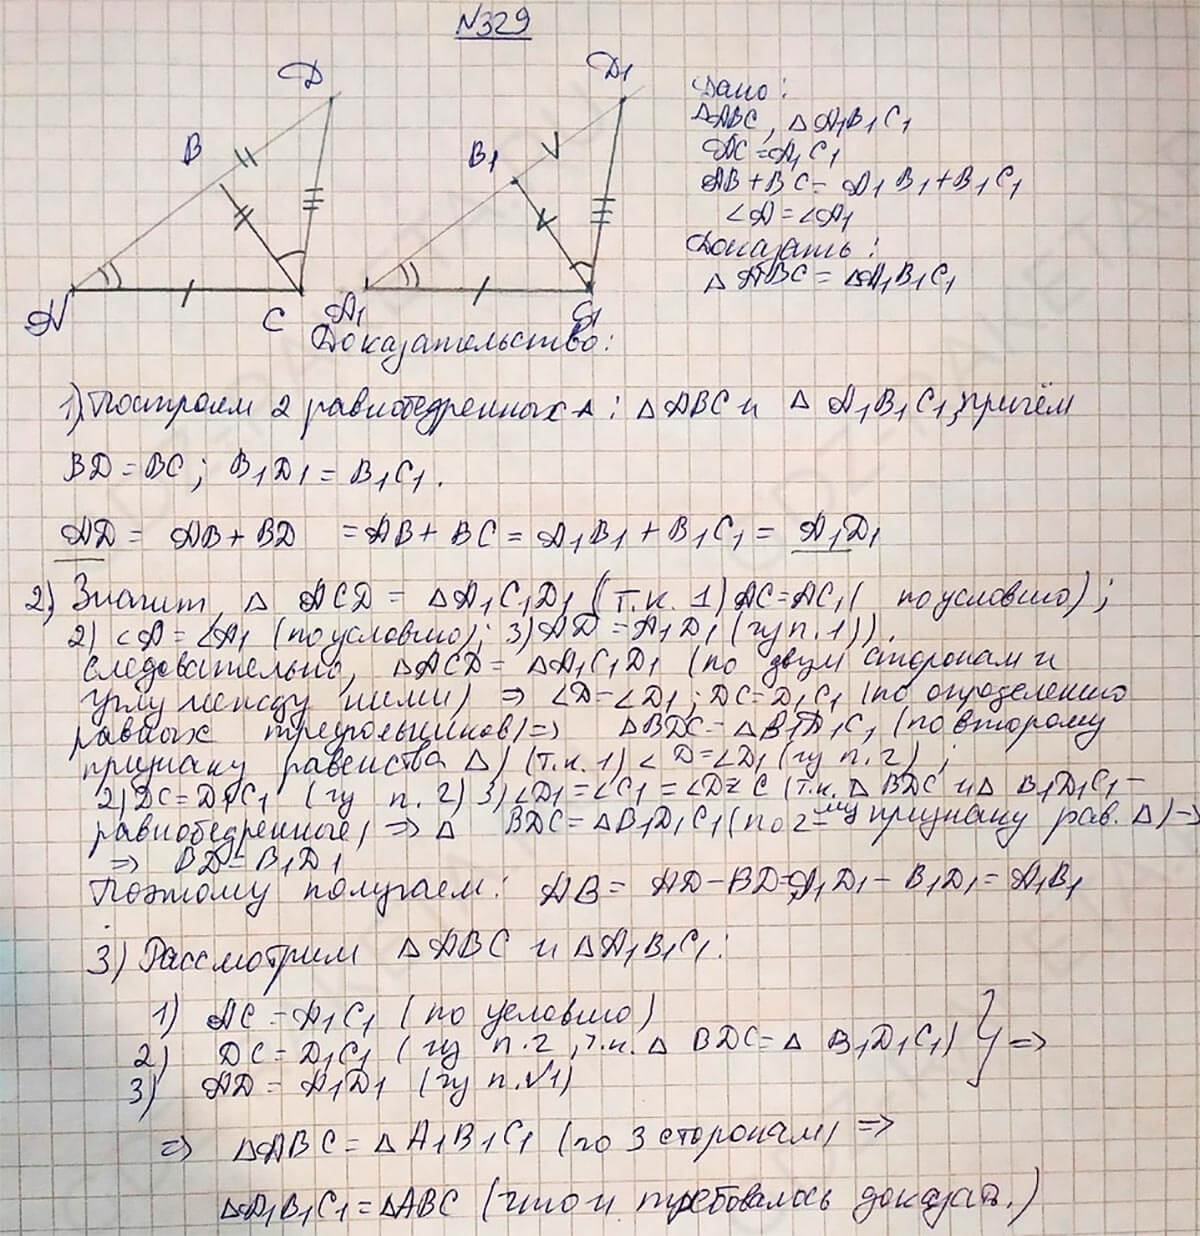 №329
D
D1
B
B1
A
C
A1
C1
Дано:
△ABC, △A1B1C1
AC=A1C1
AB+BC=A1B1+B1C1
∠A=∠A1
Доказать:
△ABC=△A1B1C1
Доказательство:
1) Построем 2 равнобедренных △: △ABC и △A1B1C1, причём
BD=BC; B1D1=B1C1.
AD = AB+BD =AB+BC=A1B1+B1C1= A1D1
2) Значит, △ ACD = △A1C1D1 (т.к. 1) AC=AC1( по условию);
2) ∠A=∠A1 (по условию); 3) AD=A1D1 (из п.1)).
следовательно, △ACD=△A1C1D1 (по двум сторонам и
углу между ними) ⇒ ∠D=∠D1; DC=D1C1 (по определению
равных треугольников) ⇒ △BDC=△B1D1C1 (по второму
признаку равенства △) (т.к. 1) ∠D=∠D1 (из п.2);
2) DC=D1C1 (из п.2) 3) ∠D1=∠C1=∠D=∠C (т.к. △BDC и △ B1D1C1 –
равнобедренные) ⇒ △ BDC=△B1D1C1 (по 2-му признаку рав. △) ⇒
⇒ BD=B1D1
Поэтому получаем: AB= AD-BD=A1D1-B1D1=A1B1
3) Рассмотрим △ABC и △A1B1C1:
1) AC=A1C1 (по условию)
2) DC=D1C1 (из п.2, т.к. △ BDC=△ B1D1C1) } ⇒
3) AD=A1D1 (из п.√1)
⇒ △ABC=△A1B1C1 (по 3 сторонам) ⇒
△A1B1C1=△ABC (что и требовалось доказать.)